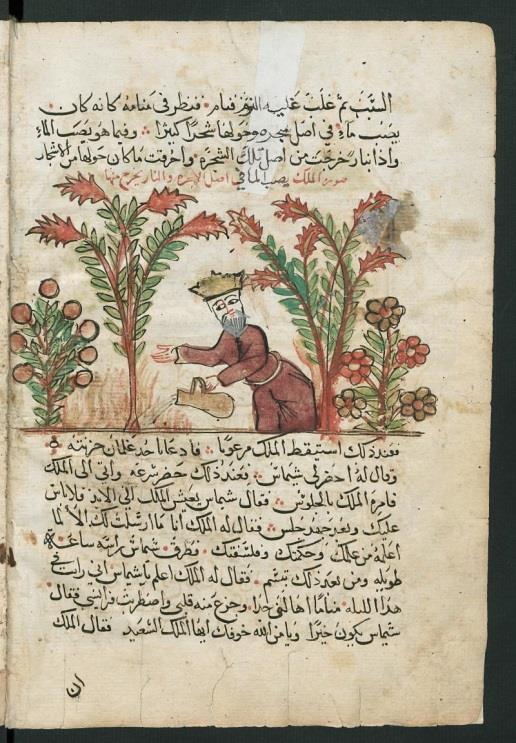 السبب ثم غلب عليه النوم فنام فنظر في منامه كانه كان
يصب ماء في اصل شجره وحولها شجرا كثيرا وفيما هو يصب الماء
واذا بنار خرجت من اصل تلك الشجره واحرقت ما كان حولها من الاشجار
صورة الملك يصب الما في اصل الشجره والنار يخرج منها
فعند ذلك استيقظ الملك مرعوبا فادعا باحد غلمان حرمته
وقال له احضر لي شماس فعند ذلك حضر بسرعه واتى الى الملك
فامره الملك بالجلوس فقال شماس يعيش الملك الى الابد فلا باس
عليك وبعد جهد جلس فقال له الملك انا ما ارسلت لك الا لما
اعلمه من علمك وحكمتك وفلسفتك فطرق شماس راسه ساعة
طويله ومن بعد ذلك تبسم فقال له الملك اعلم يا شماس اني رايت في
هذا الليله مناما اهالني جدا وجزع منه قلبي واضطربت فرايسي فقال
شماس يكون خيرا ويامن الله خوفك ايها الملك السعيد فقال الملك
ان